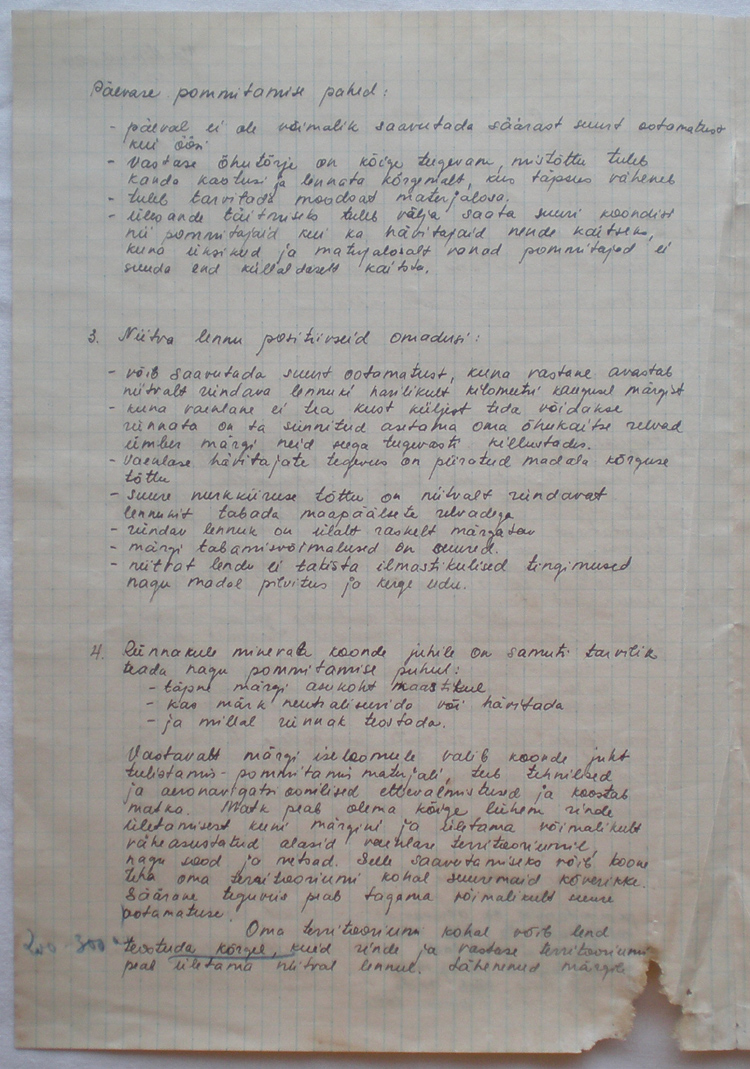 Päevase pommitamise pahed:
- päeval ei ole võimalik saavutada säärast suurt ootamatust
kui öösi
- Vastase õhutõrje on kõige tugevam, mistõttu tuleb
kanda kaotusi ja lennata kõrgemalt, kus täpsus väheneb
- tuleb tarvitada moodsat materjalosa.
- ülesande täitmiseks tuleb välja saata suuri koondisi
nii pommitajaid kui ka hävitajaid nende kaitseks,
kuna üksikud ja materjalosalt vanad pommitajad ei
suuda end küllaldaselt kaitsta.
3. Niitva lennu positiivseid omadusi:
- võib saavutada suurt ootamatust, kuna vastane avastab
niitvalt ründava lennuki harilikult kilomeetri kaugusel märgist
- kuna vaenlane ei tea kust küljest teda võidakse
rünnata on ta sunnitud asetama oma õhukaitse relvad
ümber märgi neid seega tugevasti killustades.
- Vaenlase hävitajate tegevus on piiratud madala kõrguse
tõttu
- suure nurkkiiruse tõttu on niitvalt ründavat
lennukit tabada maapäälsete relvadega
- ründav lennuk on ülalt raskelt märgatav
- märgi tabamisvõimalused on suured.
- niitvat lendu ei takista ilmastikulised tingimused
nagu madal pilvitus ja kerge udu.
4. Rünnakule mineva koonde juhile on samuti tarvilik
teada nagu pommitamise puhul:
- täpne märgi asukoht maastikul
- kas märk neutraliseerida või hävitada
- ja millal rünnak teostada.
Vastavalt märgi iseloomule valib koonde juht
tulistamis-pommitamis materjali, teeb tehnilised
ja aeronavigatsioonilised ettevalmistused ja koostab
matka. Matk peab olema kõige lühem rinde
ületamisest kuni märgini ja ületama võimalikult
väheasustatud alasid vaenlase territooriumil,
nagu sood ja metsad. Selle saavutamiseks võib koone
teha oma territooriumi kohal suuremaid kõverikke.
Säärane tegevus peab tagama võimalikult suure
ootamatuse.
Oma territooriumi kohal võib lend
200-300
teostuda kõrgel, kuid rinde ja vastase territooriumi
peal ületama niitval lennul. Lähenenud märgile